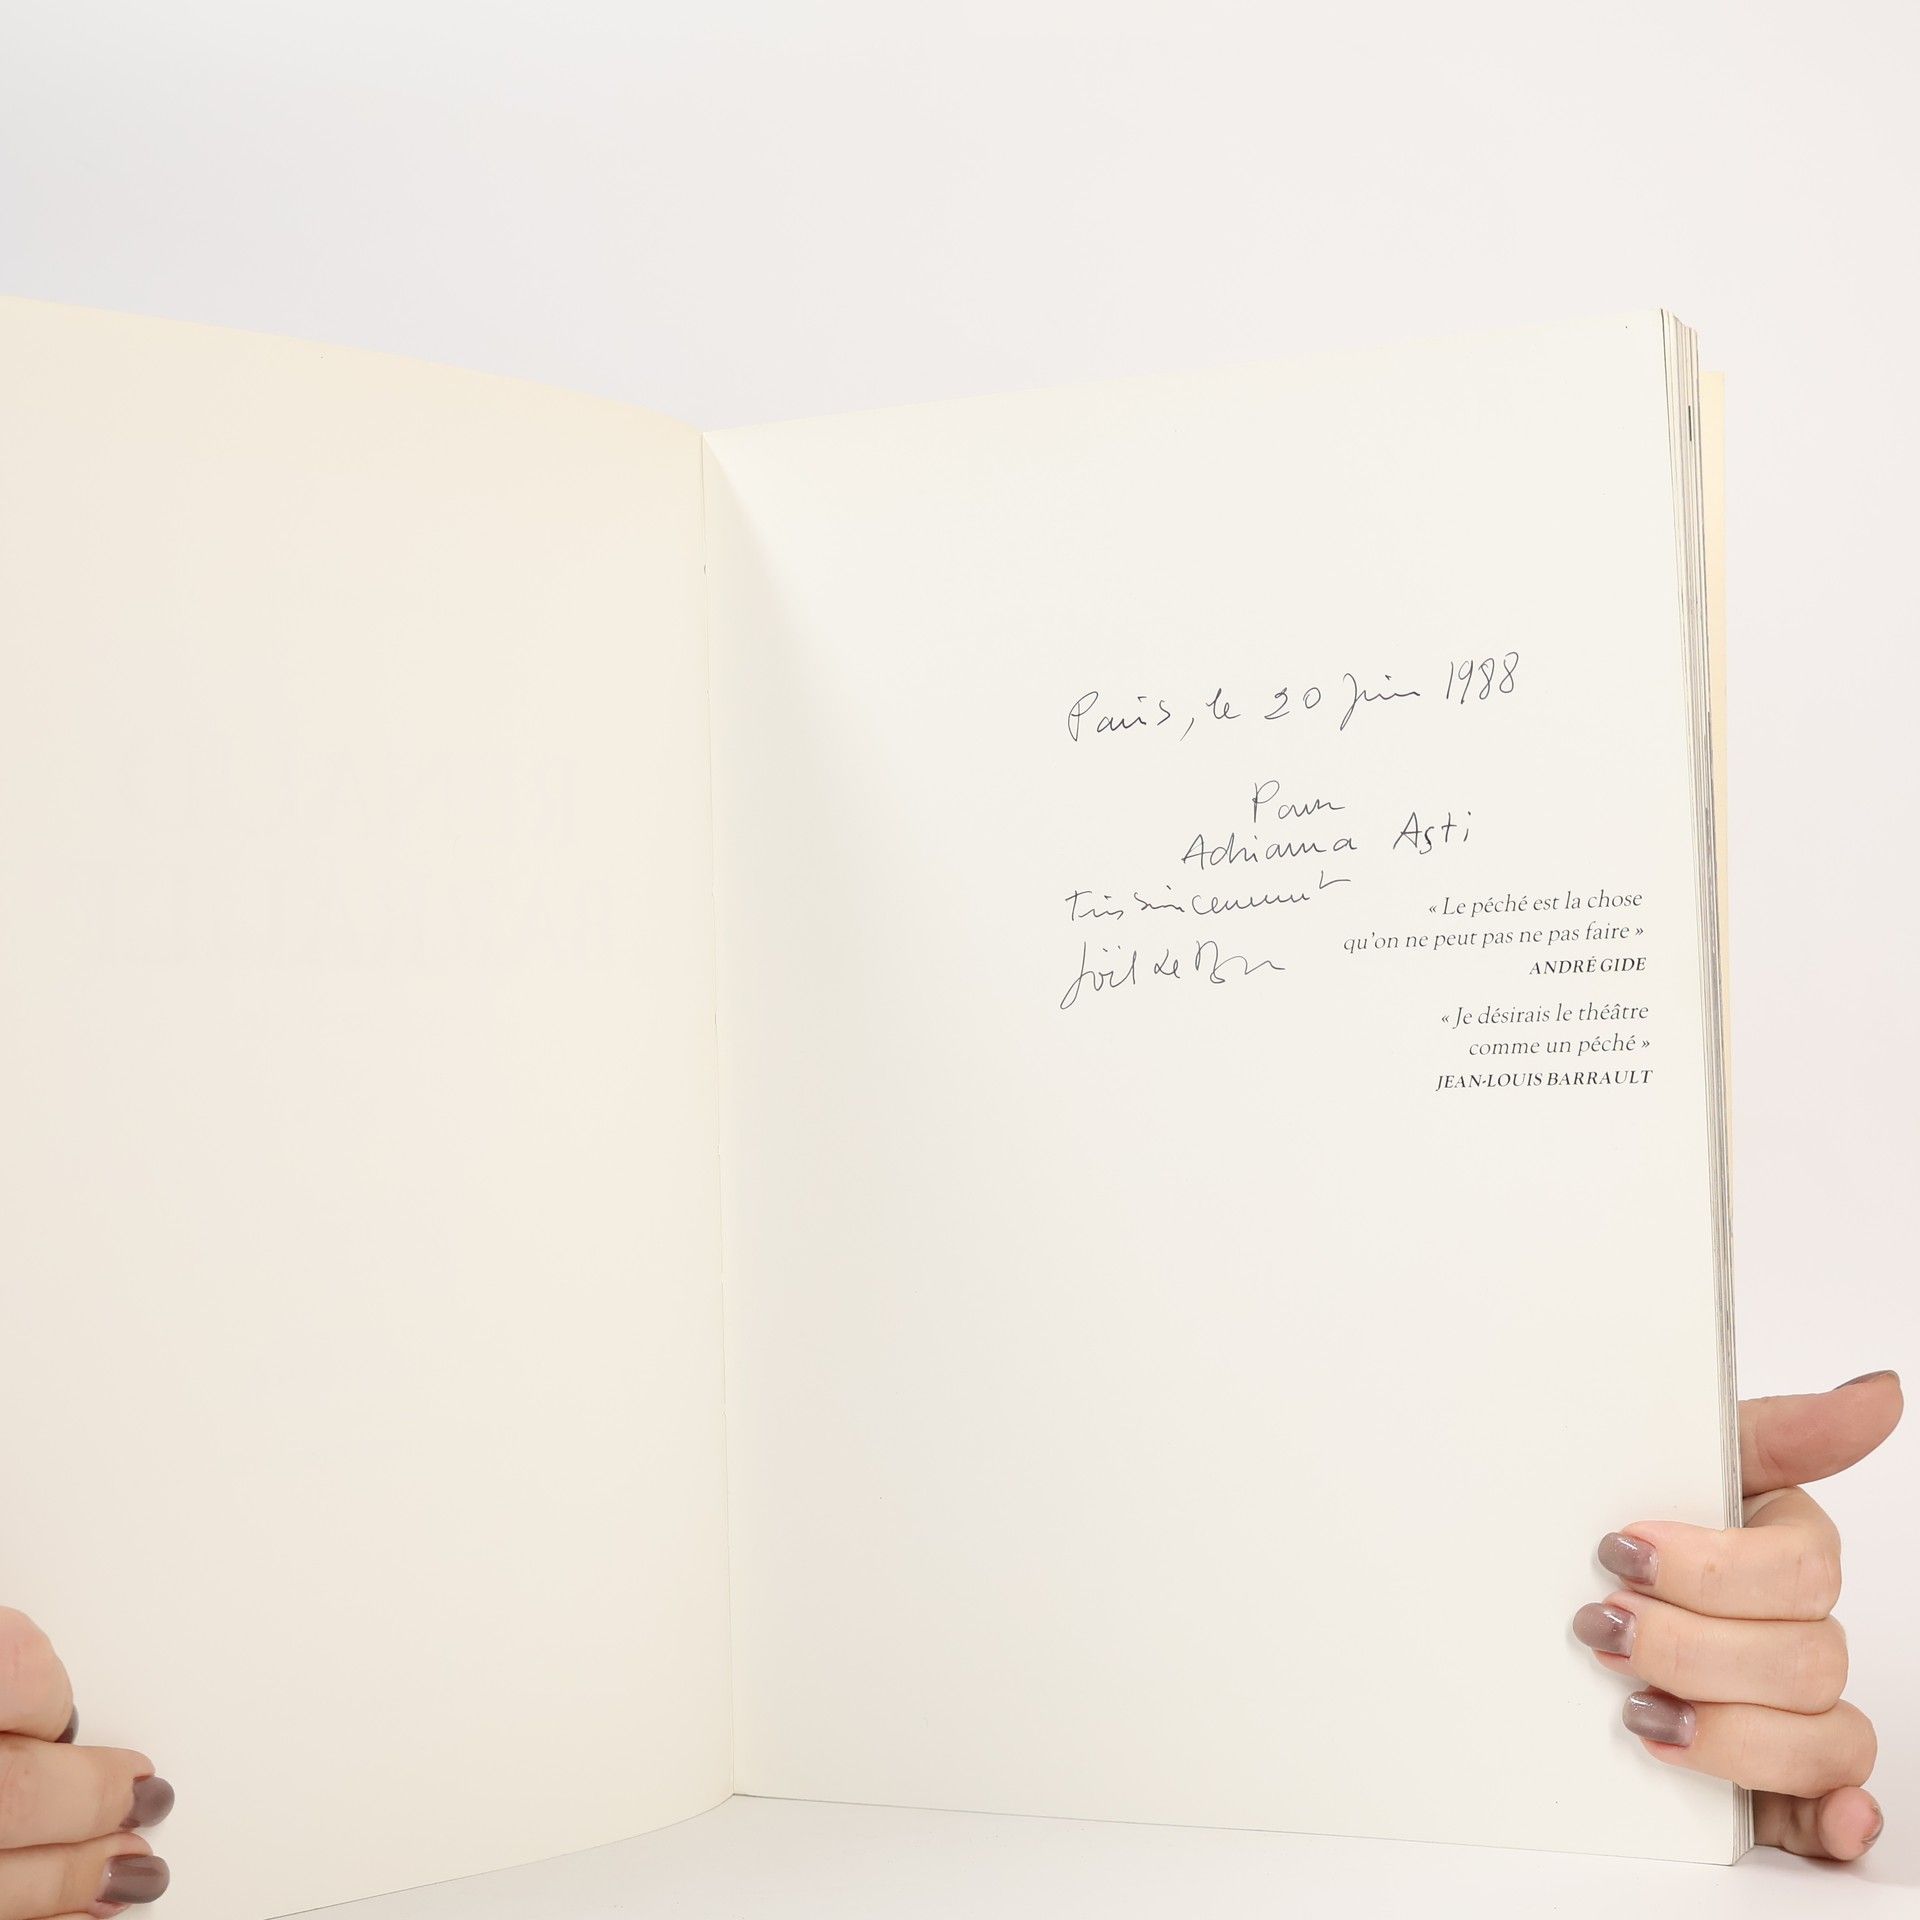 Paris, le 20 Juin 1988
Pour
Adriana Asti
très sincèrement
Joël Le Bon
« Le péché est la chose
qu'on ne peut pas ne pas faire »
ANDRÉ GIDE
« Je désirais le théâtre
comme un péché »
JEAN-LOUIS BARRAULT